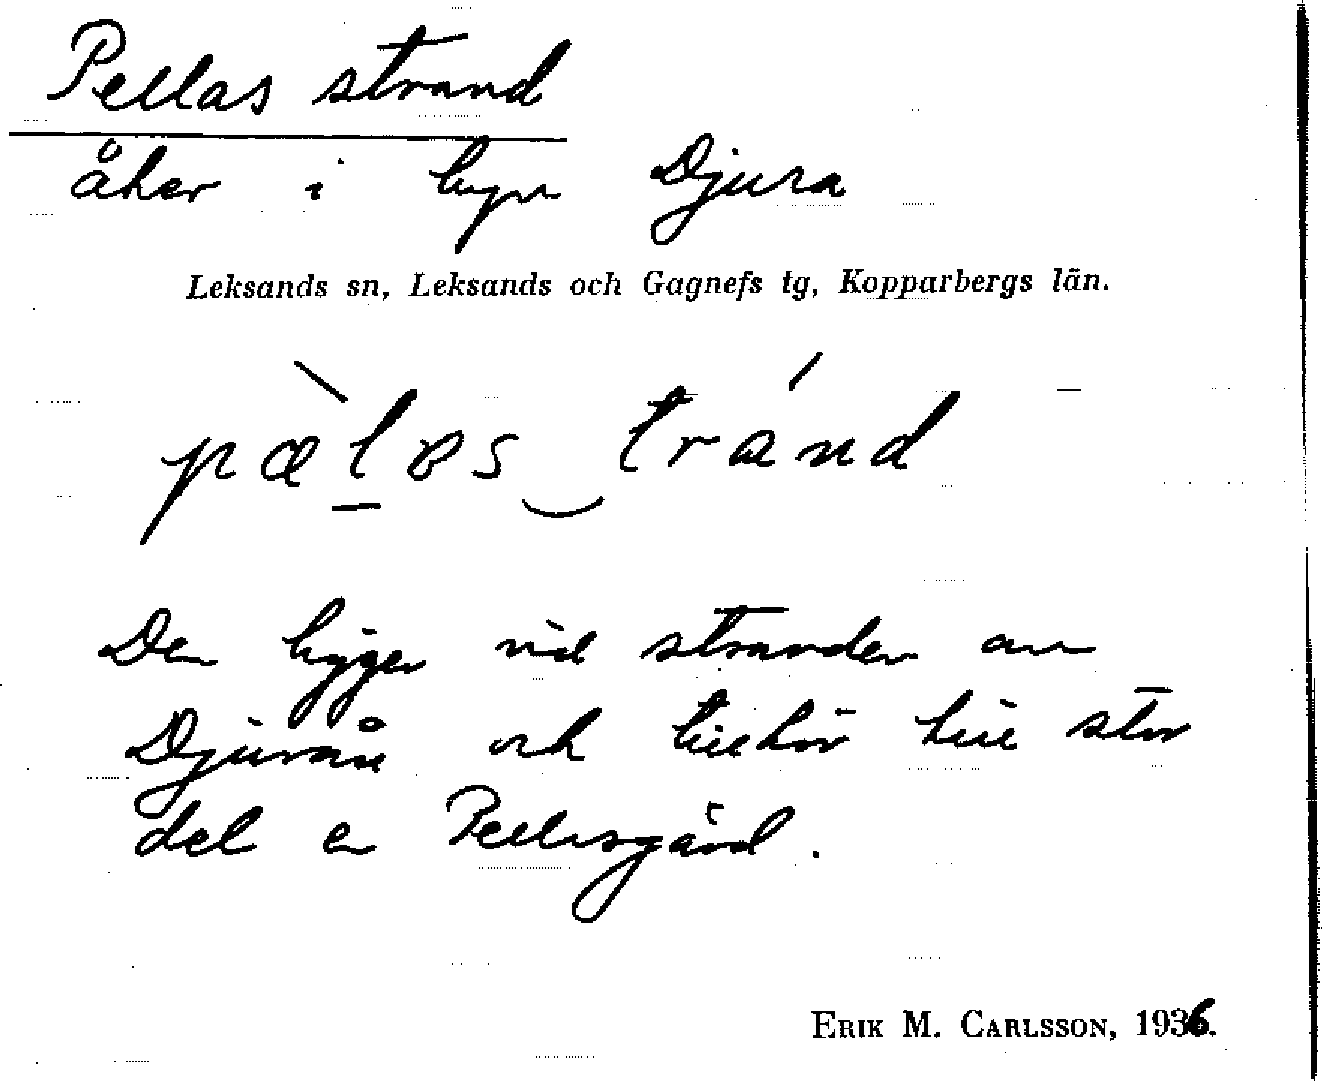 Pellas strand
åker i byn Djura
Leksands sn, Leksands och Gagnefs tg, Kopparbergs län.
pæ̀l̠øs‿tránd
Den ligger vid stranden av
Djurån och tillhör till stor
del en Pellasgård.
ERIK M. CARLSSON, 1936.